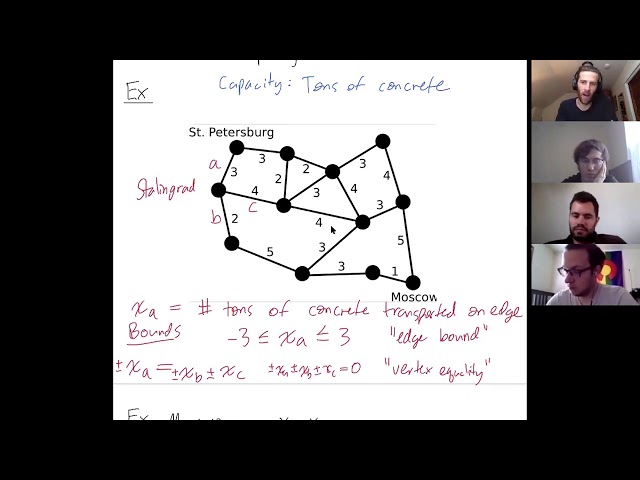 Capacity: Tons of concrete
Ex
St. Petersburg
a 3 3 2 3 4
Stalingrad 4 2 3 4 3
c
b 2 4 5
5 3
3 1
Moscow
xa = # tons of concrete transported on edge
Bounds -3 ≤ xa ≤ 3 "edge bound"
±xa = ±xb ± xc ±xa ±xb ±xc = 0 "vertex equality"
Ex